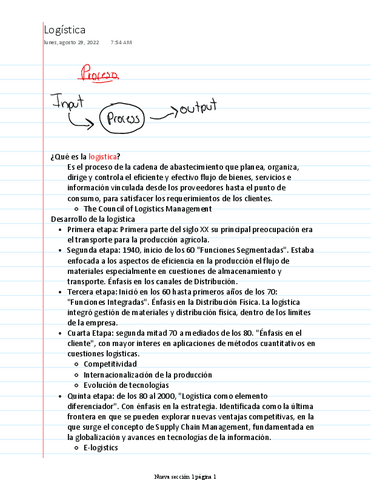 Logística
lunes, agosto 29, 2022 7:54 AM
Proceso
Input
Process
output
¿Qué es la logística?
Es el proceso de la cadena de abastecimiento que planea, organiza,
dirige y controla el eficiente y efectivo flujo de bienes, servicios e
información vinculada desde los proveedores hasta el punto de
consumo, para satisfacer los requerimientos de los clientes.
○ The Council of Logistics Management
Desarrollo de la logística
• Primera etapa: Primera parte del siglo XX su principal preocupación era
el transporte para la producción agrícola.
• Segunda etapa: 1940, inicio de los 60 "Funciones Segmentadas". Estaba
enfocada a los aspectos de eficiencia en la producción el flujo de
materiales especialmente en cuestiones de almacenamiento y
transporte. Énfasis en los canales de Distribución.
• Tercera etapa: Inició en los 60 hasta primeros años de los 70:
"Funciones Integradas". Énfasis en la Distribución Física. La logística
integró gestión de materiales y distribución física, dentro de los límites
de la empresa.
• Cuarta Etapa: segunda mitad 70 a mediados de los 80. "Énfasis en el
cliente", con mayor interes en aplicaciones de métodos cuantitativos en
cuestiones logísticas.
○ Competitividad
○ Internacionalización de la producción
○ Evolución de tecnologías
• Quinta etapa: de los 80 al 2000, "Logística como elemento
diferenciador". Con énfasis en la estrategia. Identificada como la última
frontera en que se pueden explorar nuevas ventajas competitivas, en la
que surge el concepto de Supply Chain Management, fundamentada en
la globalización y avances en tecnologías de la información.
○ E-logistics
Nueva sección 1 página 1